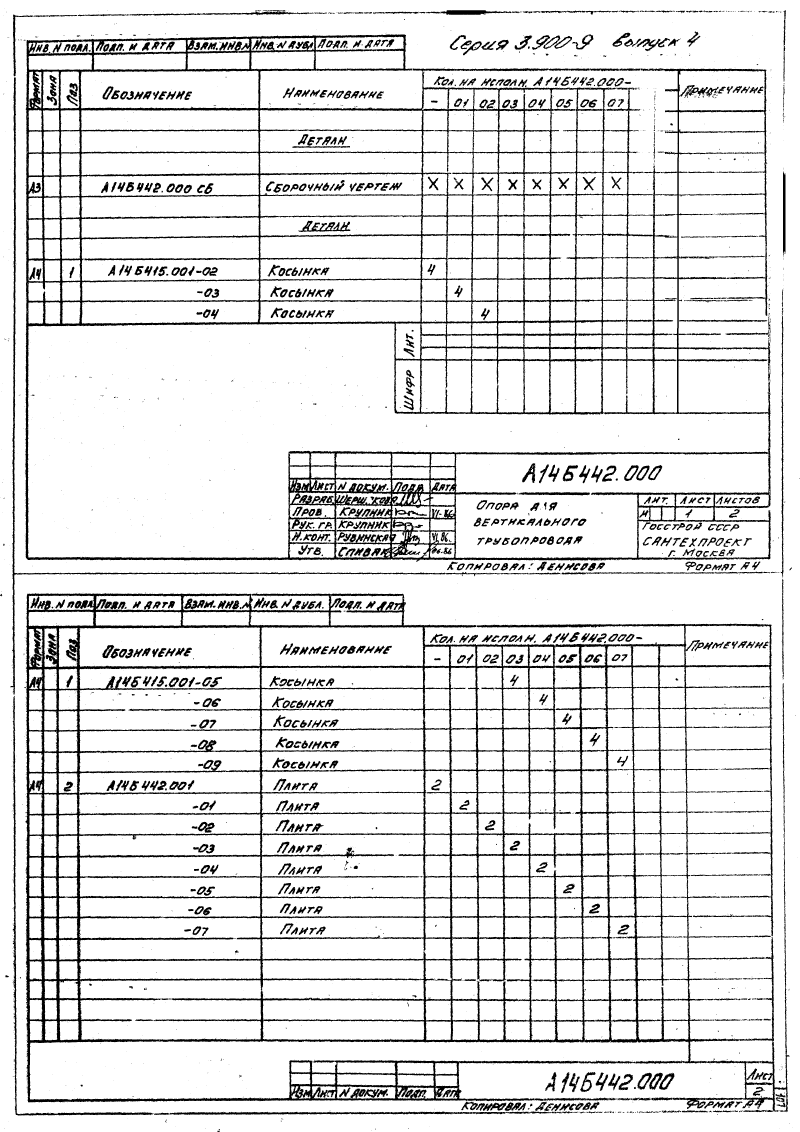 Серия 3.900-9 выпуск 4
Инв. N подл. Подп. и дата Взам. инв. N Инв. N дубл. Подп. и дата
Формат Зона Поз. Обозначение Наименование Кол. на исполн. А14Б442.000- Примечание
- 01 02 03 04 05 06 07
Детали
А3 А14Б442.000 СБ Сборочный чертеж X X X X X X X X
Детали
А4 1 А14Б415.001-02 Косынка 4
-03 Косынка 4
-04 Косынка 4
Лит.
Шифр
А14Б442.000
Изм Лист N докум. Подп. Дата
Разраб. Шерш.
Пров. Крупник VI-86
Рук. гр. Крупник
Н.конт. Рувинская VI.86
Утв. Спивак 06.86
Опора для
вертикального
трубопровода
Лит. Лист Листов
И 1 2
Госстрой СССР
Сантехпроект
г. Москва
Копировал: Денисова Формат А4
Инв. N подл. Подп. и дата Взам. инв. N Инв. N дубл. Подп. и дата
Формат Зона Поз. Обозначение Наименование Кол. на исполн. А14Б442.000- Примечание
- 01 02 03 04 05 06 07
А4 1 А14Б415.001-05 Косынка 4
-06 Косынка 4
-07 Косынка 4
-08 Косынка 4
-09 Косынка 4
А4 2 А14Б442.001 Плита 2
-01 Плита 2
-02 Плита 2
-03 Плита 2
-04 Плита 2
-05 Плита 2
-06 Плита 2
-07 Плита 2
Изм Лист N докум. Подп. Дата
А14Б442.000
Лист
2
Копировал: Денисова Формат А4